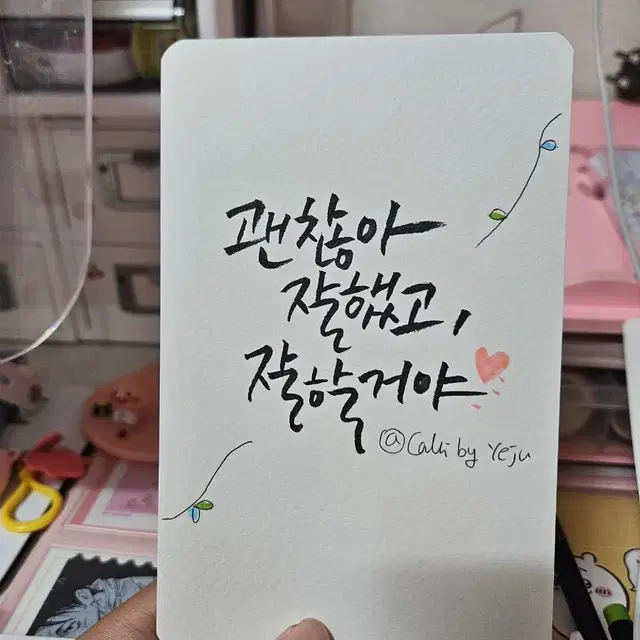 괜찮아
잘했고,
잘할거야
@Calli by Yeju